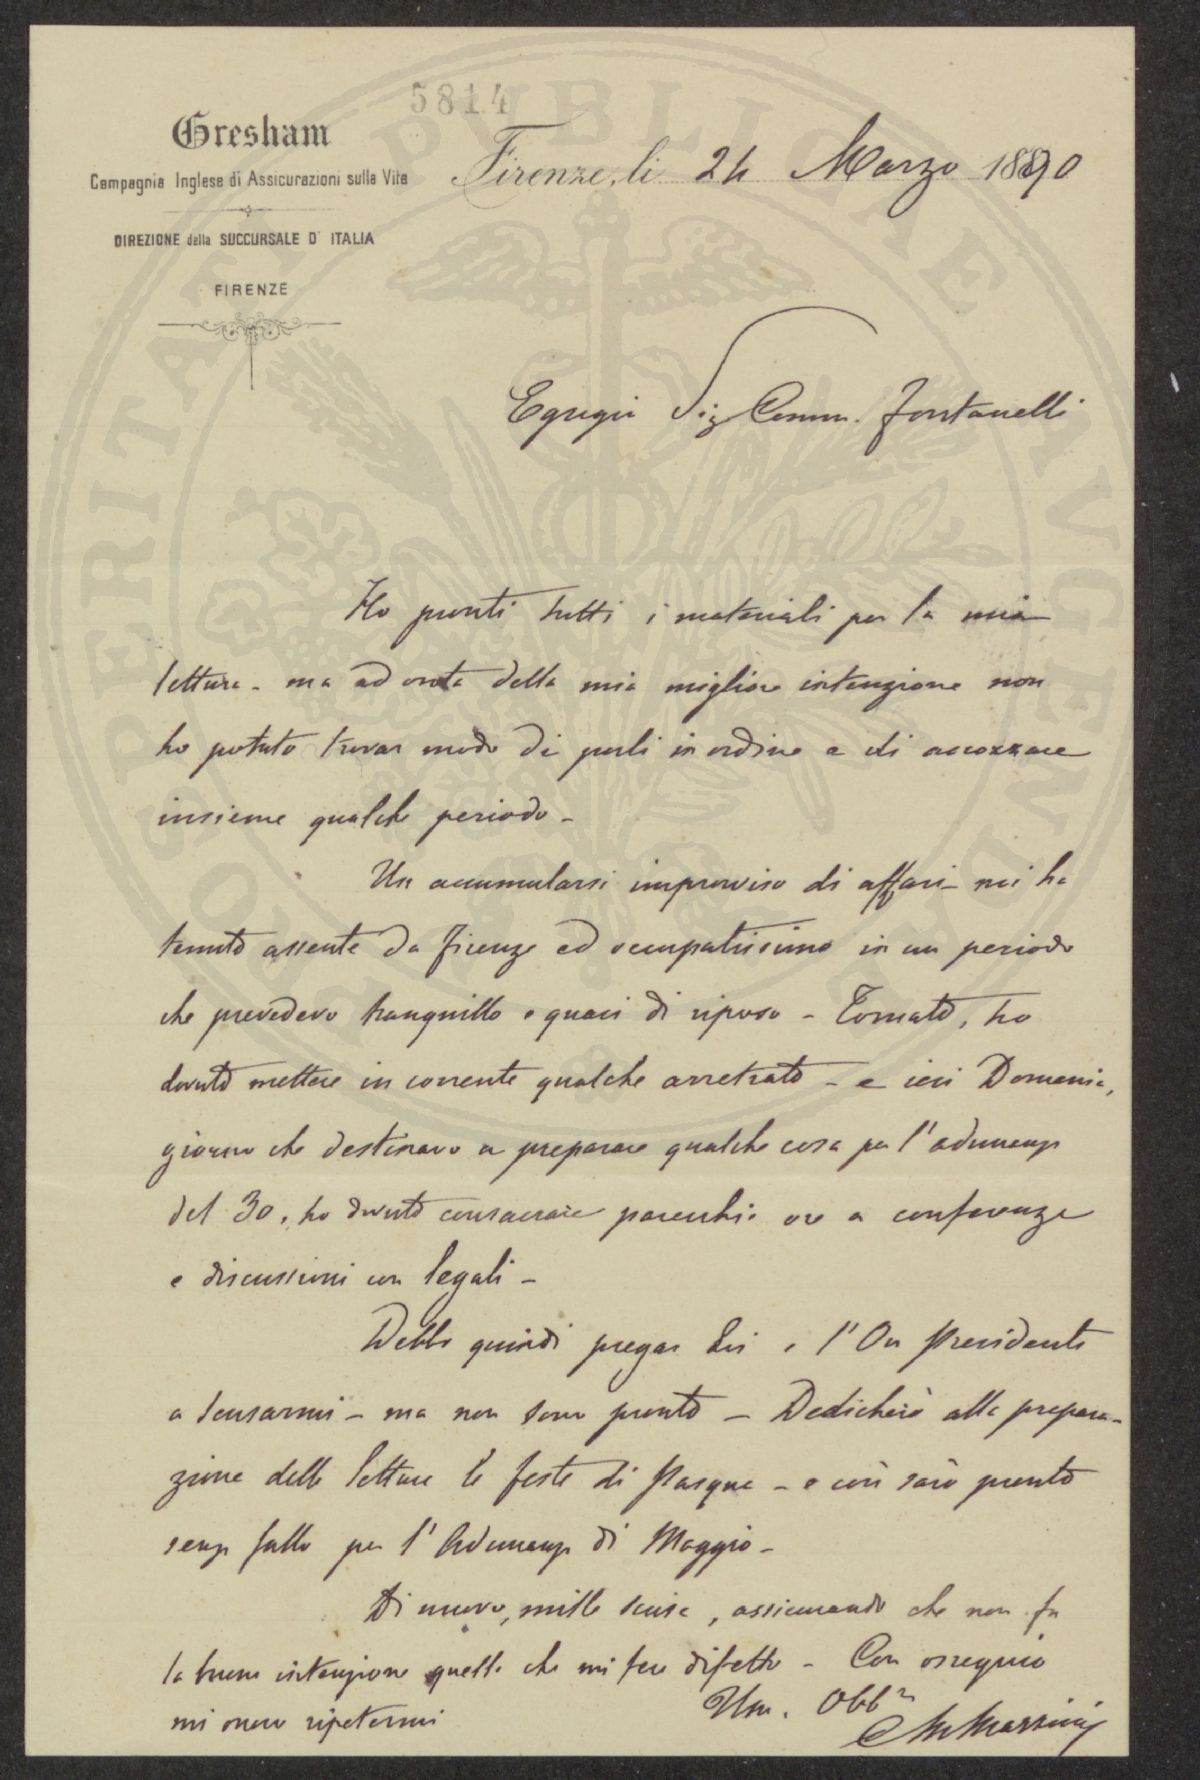 5814
Gresham
Compagnia Inglese di Assicurazioni sulla Vita
DIREZIONE della SUCCURSALE D'ITALIA
FIRENZE
Firenze, li 24 Marzo 1890
Egregio Sig Comm. Fontanelli
Ho pronti tutti i materiali per la mia
lettura - ma ad onta della mia migliore intenzione non
ho potuto trovar modo di porli in ordine e di accozzare
insieme qualche periodo -
Un accumularsi improvviso di affari mi ha
tenuto assente da Firenze ed occupatissimo in un periodo
che prevedevo tranquillo e quasi di riposo - Tornato, ho
dovuto mettere in corrente qualche arretrato - e ieri Domenica,
giorno che destinavo a preparare qualche cosa per l'adunanza
del 30, ho dovuto consacrare parecchie ore a conferenze
e discussioni con legali -
Debbo quindi pregar Lei e l'On Presidente
a scusarmi - ma non sono pronto - Dedicherò alla prepara-
zione delle letture le feste di Pasqua - e così sarò pronto
senza fallo per l'Adunanza di Maggio -
Di nuovo, mille scuse, assicurando che non fu
la buona intenzione quella che mi fece difetto - Con ossequio
mi onoro ripetermi
Um. Obb